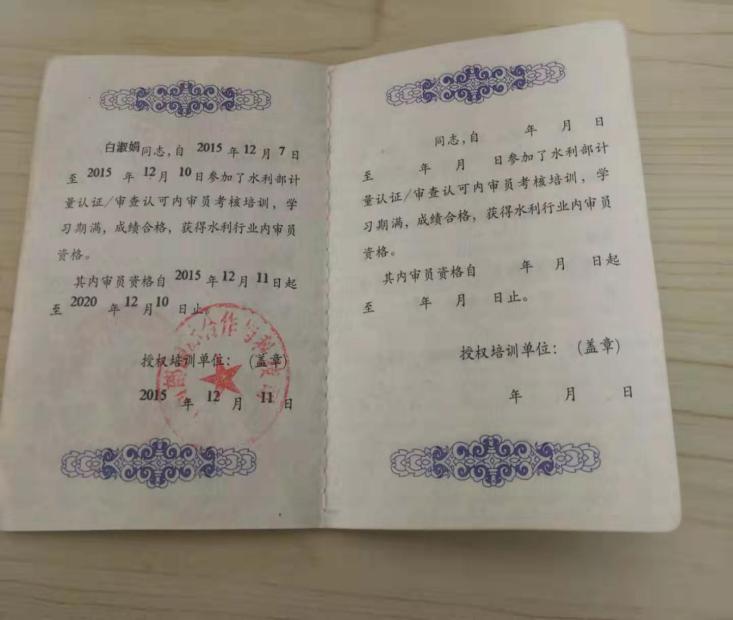 白淑娟同志，自 2015 年 12 月 7 日
至 2015 年 12 月 10 日参加了水利部计
量认证/审查认可内审员考核培训，学
习期满，成绩合格，获得水利行业内审员
资格。
其内审员资格自 2015 年 12 月 11 日起
至 2020 年 12 月 10 日止。
授权培训单位：（盖章）
合作与科
2015 年 12 月 11 日
同志，自 年 月 日
至 年 月 日参加了水利部计
量认证/审查认可内审员考核培训，学
习期满，成绩合格，获得水利行业内审员
资格。
其内审员资格自 年 月 日起
至 年 月 日止。
授权培训单位：（盖章）
年 月 日